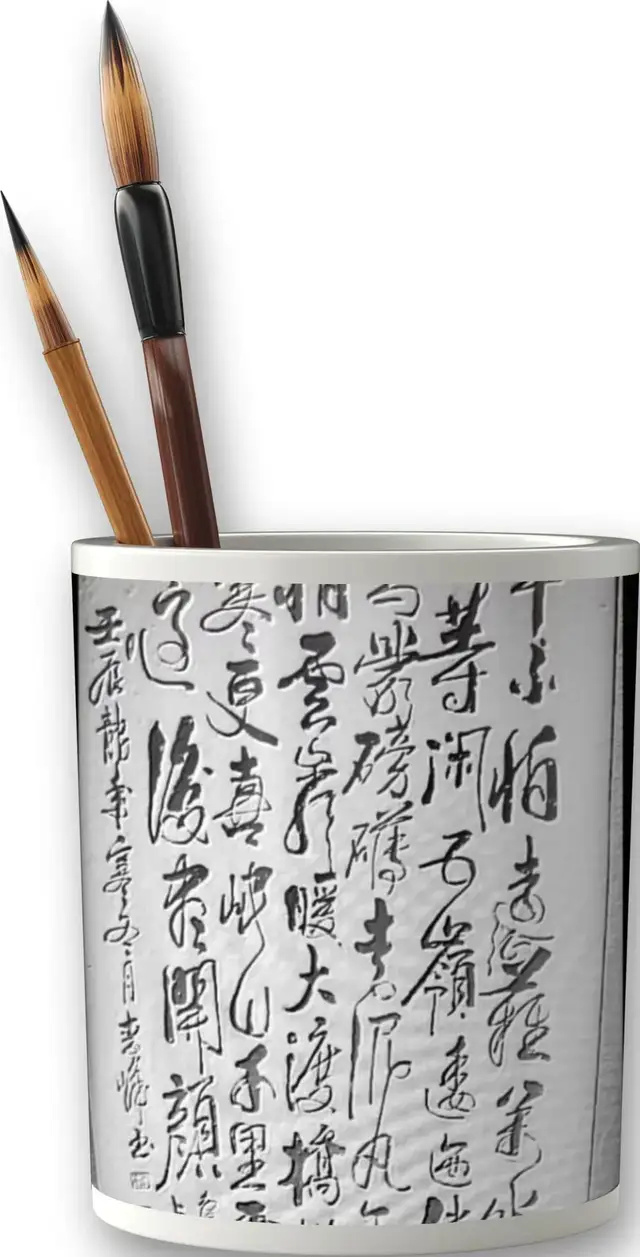 不怕遠征難萬水
等閑五嶺逶迤
蒙磅礴走泥丸
拍雲崖暖大渡橋
寒更喜岷山千里
過後盡開顏
壬辰龍年寒冬月